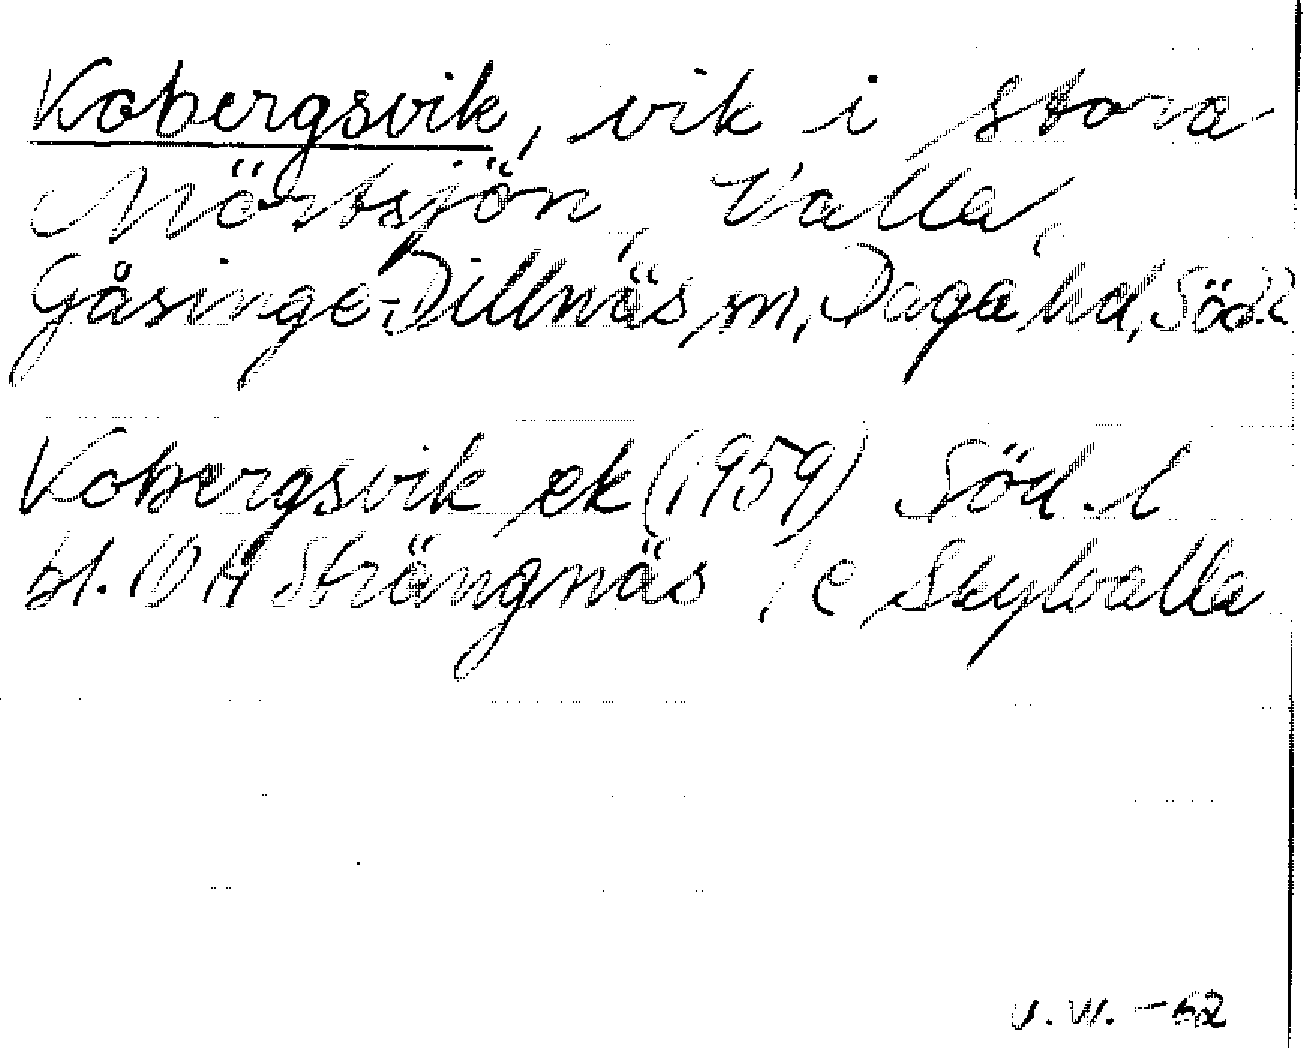 Kobergsvik, vik i Stora
Mörtsjön, Valla,
Gåsinge-Dillnäs sn, Daga hd, Söd. l
Kobergsvik ek (1959) Söd. l
bl. 10 H Strängnäs 1 c Skyttvalla
V. W. -62